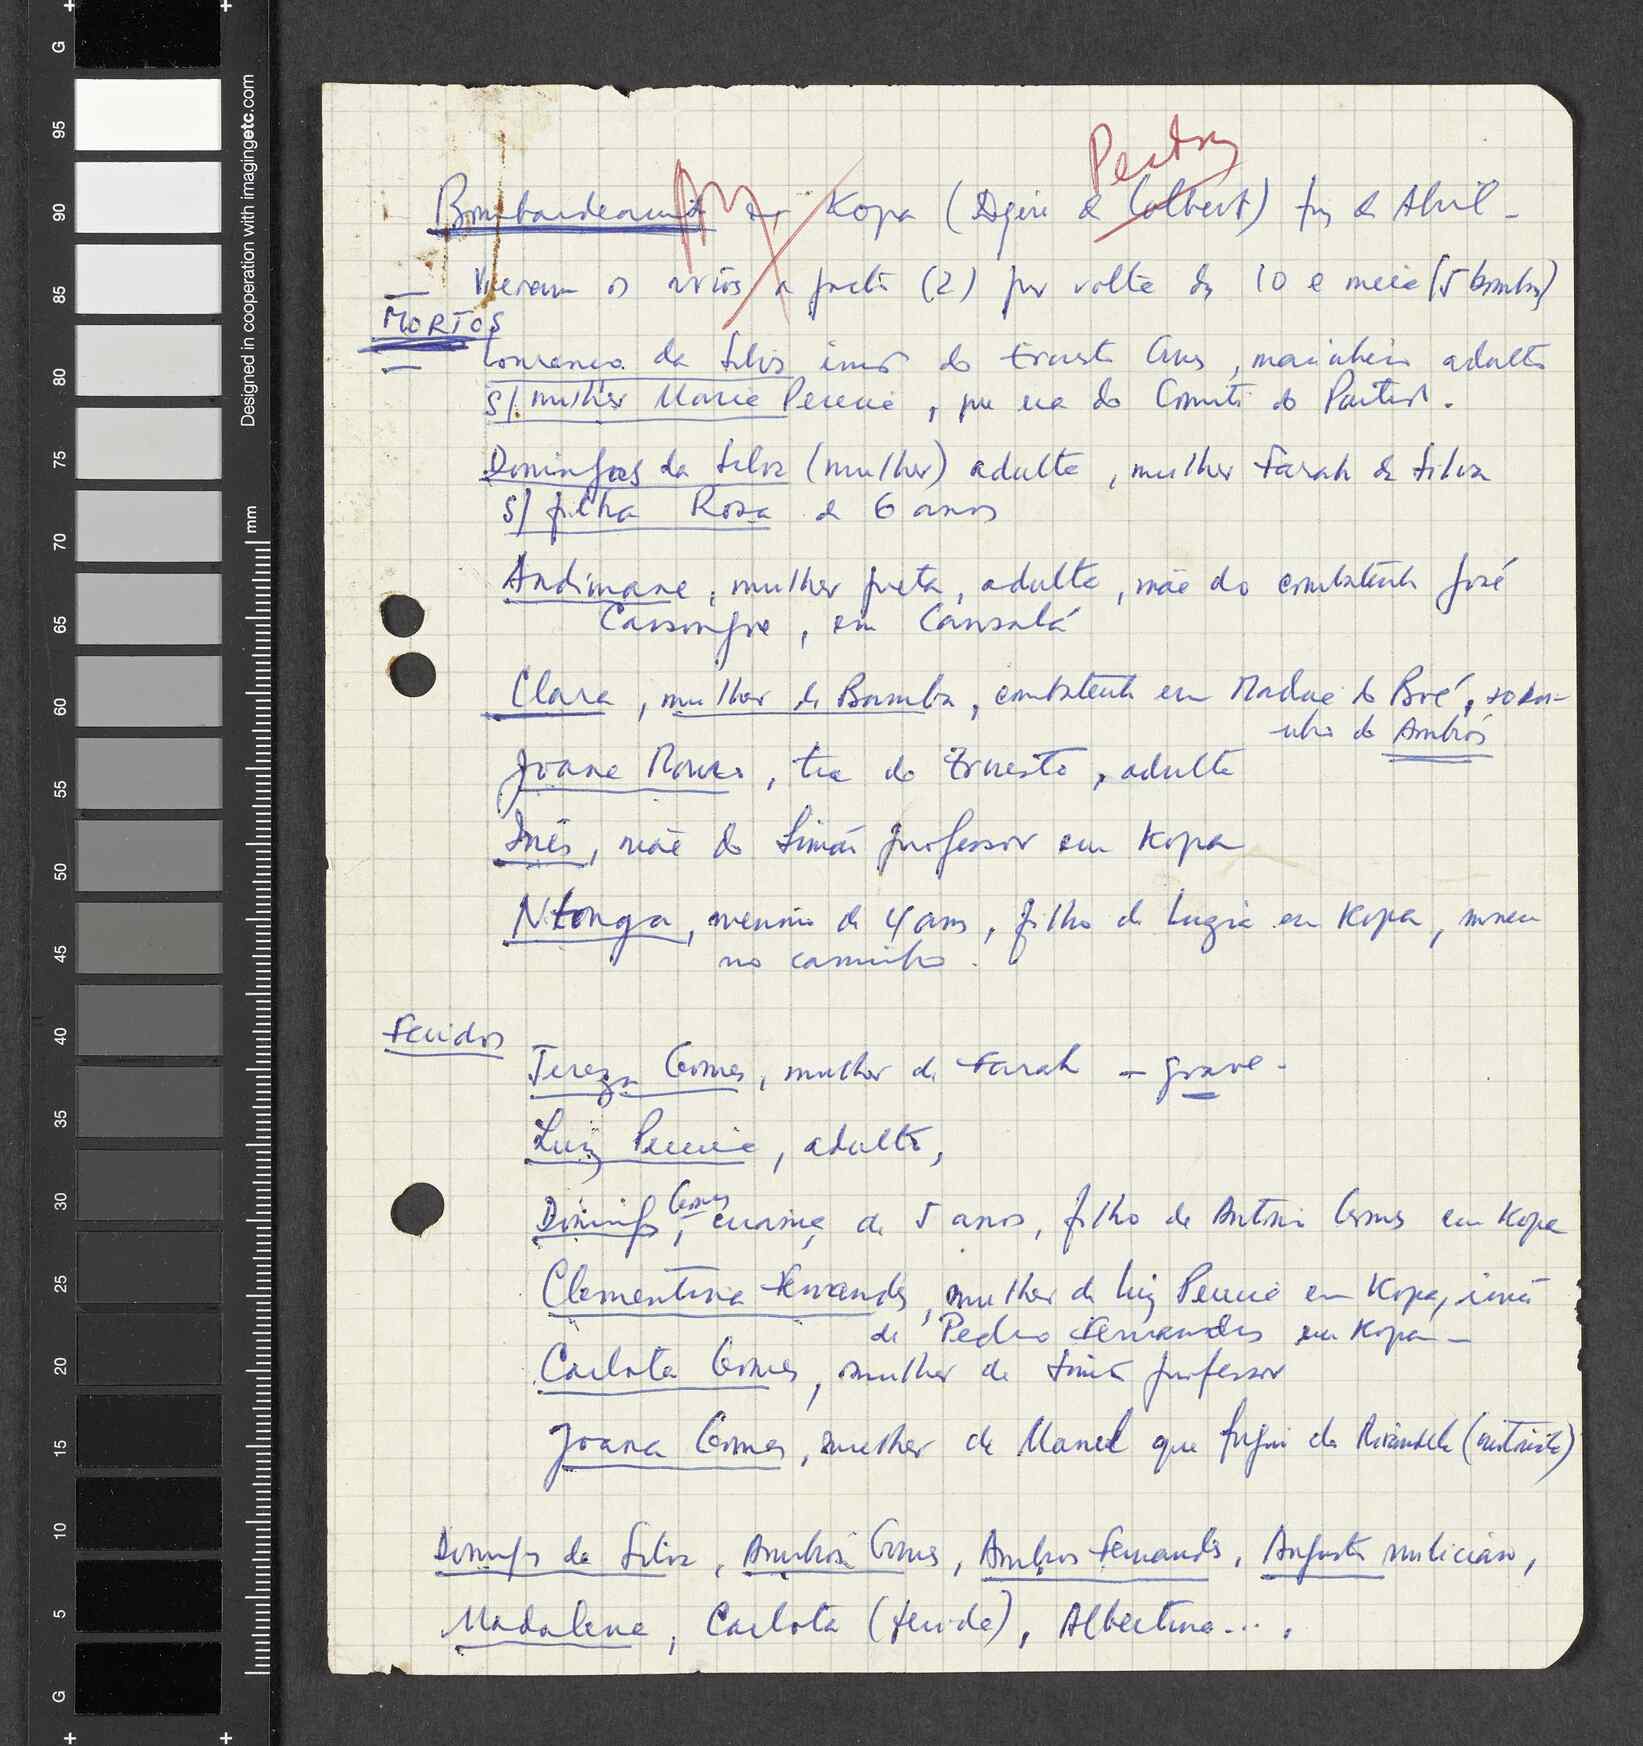 Pedro
Bombardeamento de Kopa (Agiri de Colbert) fim de Abril -
Vieram os aviões a jacto (2) por volta das 10 e meia (5 bombas)
MORTOS
Lourenço da Silva irmão do Ernesto Gomes, marinheiro adulto
s/ mulher Maria Pereira, que era do Comité do Partido.
Domingas da Silva (mulher) adulta, mulher Farah da Silva
s/ filha Rosa de 6 anos
Andimane, mulher preta, adulta, mãe do combatente José
Cassongue, em Cansalá
Clara, mulher de Bamba, combatente em Madina do Boé, sobri-
nho do Ambrós
Joana, tia do Ernesto, adulta
Inês, mãe do Simão professor em Kopa
Ntonga, menino de 4 anos, filho de Luzia em Kopa, morreu
no caminho.
Feridos
Tereza Gomes, mulher de Farah - grave -
Luiz Pereira, adulto,
Domingos Gomes, criança de 5 anos, filho de António Gomes em Kopa
Clementina Fernandes, mulher de Luiz Pereira em Kopa, irmã
de Pedro Fernandes em Kopa -
Carlota Gomes, mulher de Simão professor
Joana Gomes, mulher de Manel que fugiu da (motorista)
Domingos da Silva, Ambrósio Gomes, Ambros Fernandes, Augusto miliciano,
Madalena, Carlota (ferida), Albertina... .
Designed in cooperation with imagingetc.com
mm
G
95
90
85
80
75
70
65
60
55
50
45
40
35
30
25
20
15
10
5
G